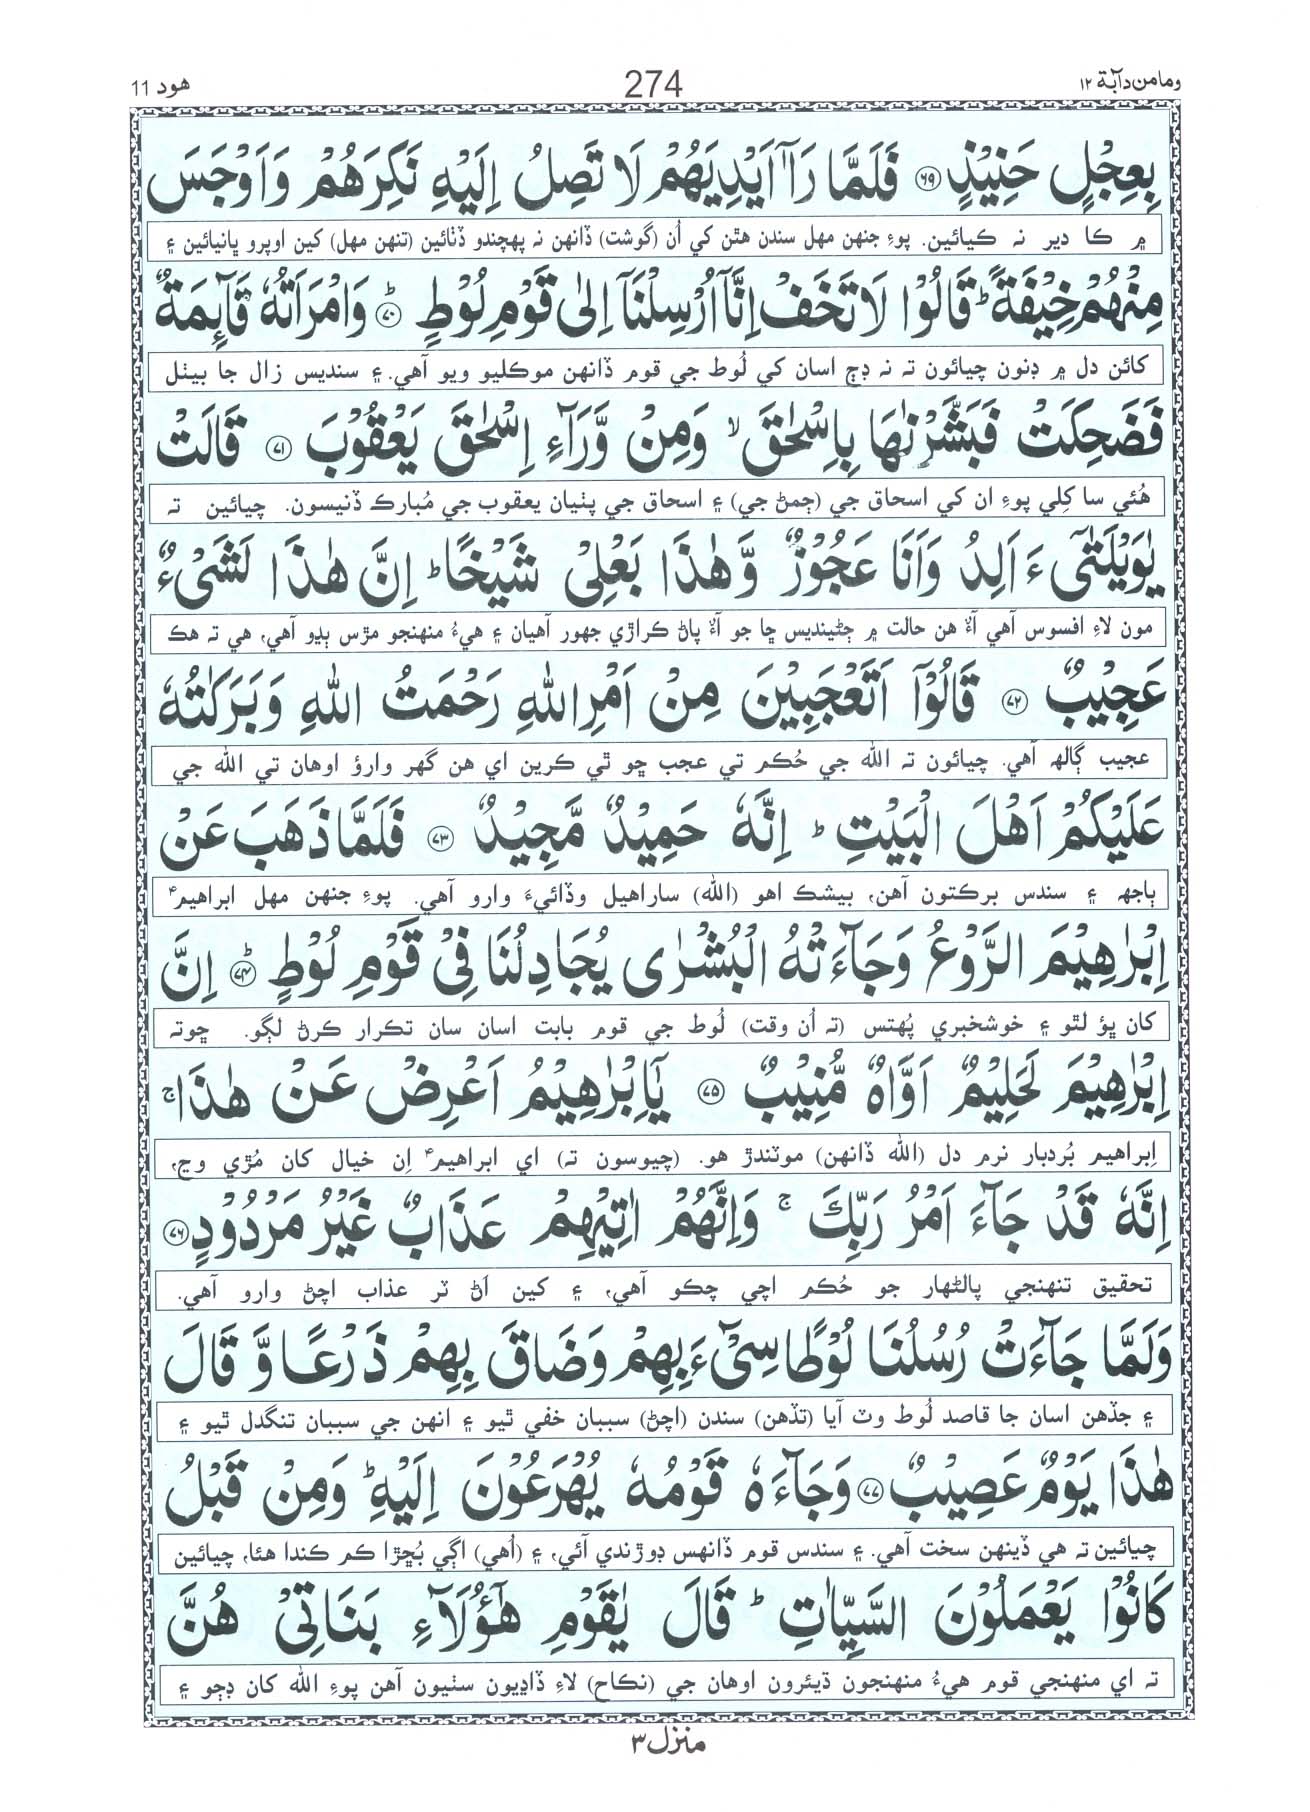 ومامن دآبة ١٢ 274 هود 11
بِعِجْلٍ حَنِيْذٍ ﴿۶۹﴾ فَلَمَّا رَاٰۤ اَيْدِيَهُمْ لَا تَصِلُ اِلَيْهِ نَكِرَهُمْ وَاَوْجَسَ
۾ ڪا دير نہ ڪيائين. پوءِ جنهن مهل سندن هٿن کي اُن (گوشت) ڏانهن نہ پهچندو ڏٺائين (تنهن مهل) کين اوپرو ڀانيائين ۽
مِنْهُمْ خِيْفَةً ؕ قَالُوْا لَا تَخَفْ اِنَّاۤ اُرْسِلْنَاۤ اِلٰى قَوْمِ لُوْطٍ ﴿ؕ۷۰﴾ وَامْرَاَتُهٗ قَآئِمَةٌ
کائن دل ۾ ڊنون چيائون تہ نہ ڊڄ اسان کي لُوط جي قوم ڏانهن موڪليو ويو آهي. ۽ سنديس زال جا بيٺل
فَضَحِكَتْ فَبَشَّرْنٰهَا بِاِسْحٰقَ ۙ وَمِنْ وَّرَآءِ اِسْحٰقَ يَعْقُوْبَ ﴿۷۱﴾ قَالَتْ
هُئي سا کِلي پوءِ ان کي اسحاق جي (ڄمڻ جي) ۽ اسحاق جي پٺيان يعقوب جي مُبارڪ ڏنيسون. چيائين تہ
يٰوَيْلَتٰٓى ءَاَلِدُ وَاَنَا عَجُوْزٌ وَّهٰذَا بَعْلِىْ شَيْخًا ؕ اِنَّ هٰذَا لَشَىْءٌ
مون لاءِ افسوس آهي آءٌ هن حالت ۾ ڄڻينديس ڇا جو آءٌ پاڻ ڪراڙي جهور آهيان ۽ هيءُ منهنجو مڙس ٻڍو آهي، هي تہ هڪ
عَجِيْبٌ ﴿۷۲﴾ قَالُوْۤا اَتَعْجَبِيْنَ مِنْ اَمْرِ اللّٰهِ رَحْمَتُ اللّٰهِ وَبَرَكٰتُهٗ
عجيب ڳالهہ آهي. چيائون تہ الله جي حُڪم تي عجب ڇو ٿي ڪرين اي هن گهر وارؤ اوهان تي الله جي
عَلَيْكُمْ اَهْلَ الْبَيْتِ ؕ اِنَّهٗ حَمِيْدٌ مَّجِيْدٌ ﴿۷۳﴾ فَلَمَّا ذَهَبَ عَنْ
ٻاجهہ ۽ سندس برڪتون آهن، بيشڪ اهو (الله) ساراهيل وڏائيءَ وارو آهي. پوءِ جنهن مهل ابراهيمؑ
اِبْرٰهِيْمَ الرَّوْعُ وَجَآءَتْهُ الْبُشْرٰى يُجَادِلُنَا فِىْ قَوْمِ لُوْطٍ ﴿ؕ۷۴﴾ اِنَّ
کان ڀؤ لٿو ۽ خوشخبري پُهتس (تہ اُن وقت) لُوط جي قوم بابت اسان سان تڪرار ڪرڻ لڳو. ڇوتہ
اِبْرٰهِيْمَ لَحَلِيْمٌ اَوَّاهٌ مُّنِيْبٌ ﴿۷۵﴾ يٰۤاِبْرٰهِيْمُ اَعْرِضْ عَنْ هٰذَا ۚ
اِبراهيم بُردبار نرم دل (الله ڏانهن) موٽندڙ هو. (چيوسون تہ) اي ابراهيمؑ اِن خيال کان مُڙي وڃ،
اِنَّهٗ قَدْ جَآءَ اَمْرُ رَبِّكَ ۚ وَاِنَّهُمْ اٰتِيْهِمْ عَذَابٌ غَيْرُ مَرْدُوْدٍ ﴿۷۶﴾
تحقيق تنهنجي پالڻهار جو حُڪم اچي چڪو آهي، ۽ کين اَڻ ٽر عذاب اچڻ وارو آهي.
وَلَمَّا جَآءَتْ رُسُلُنَا لُوْطًا سِىْٓءَ بِهِمْ وَضَاقَ بِهِمْ ذَرْعًا وَّ قَالَ
۽ جڏهن اسان جا قاصد لُوط وٽ آيا (تڏهن) سندن (اچڻ) سببان خفي ٿيو ۽ انهن جي سببان تنگدل ٿيو ۽
هٰذَا يَوْمٌ عَصِيْبٌ ﴿۷۷﴾ وَجَآءَهٗ قَوْمُهٗ يُهْرَعُوْنَ اِلَيْهِ ؕ وَمِنْ قَبْلُ
چيائين تہ هي ڏينهن سخت آهي. ۽ سندس قوم ڏانهس ڊوڙندي آئي، ۽ (اُهي) اڳي بُڇڙا ڪم ڪندا هئا، چيائين
كَانُوْا يَعْمَلُوْنَ السَّيِّاٰتِ ؕ قَالَ يٰقَوْمِ هٰٓؤُلَآءِ بَنَاتِىْ هُنَّ
تہ اي منهنجي قوم هيءُ منهنجون ڌيئرون اوهان جي (نڪاح) لاءِ ڏاڍيون سٺيون آهن پوءِ الله کان ڊڄو ۽
منزل ۳